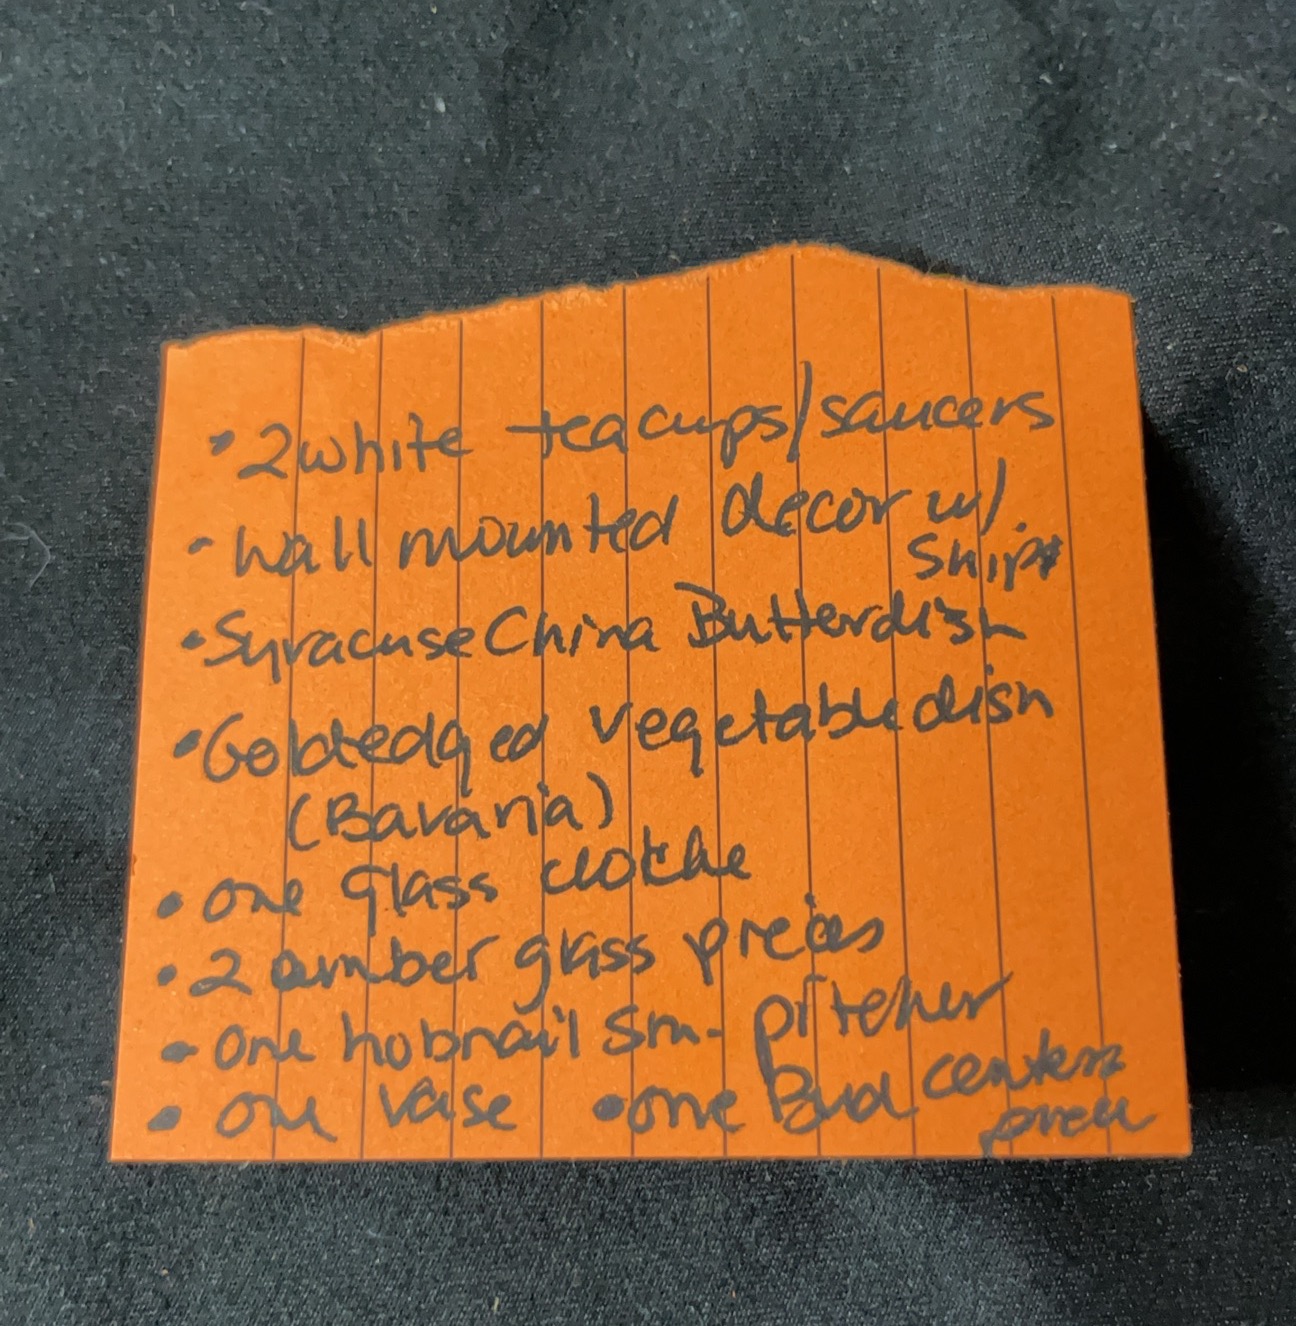 • 2 white teacups/saucers
- Wall mounted decor w/
ship
• Syracuse China Butterdish
• Goldedged vegetable dish
(Bavaria)
• one glass clotche
• 2 amber glass pieces
• one hobnail sm. pitcher
• one vase • one Bud center
piece